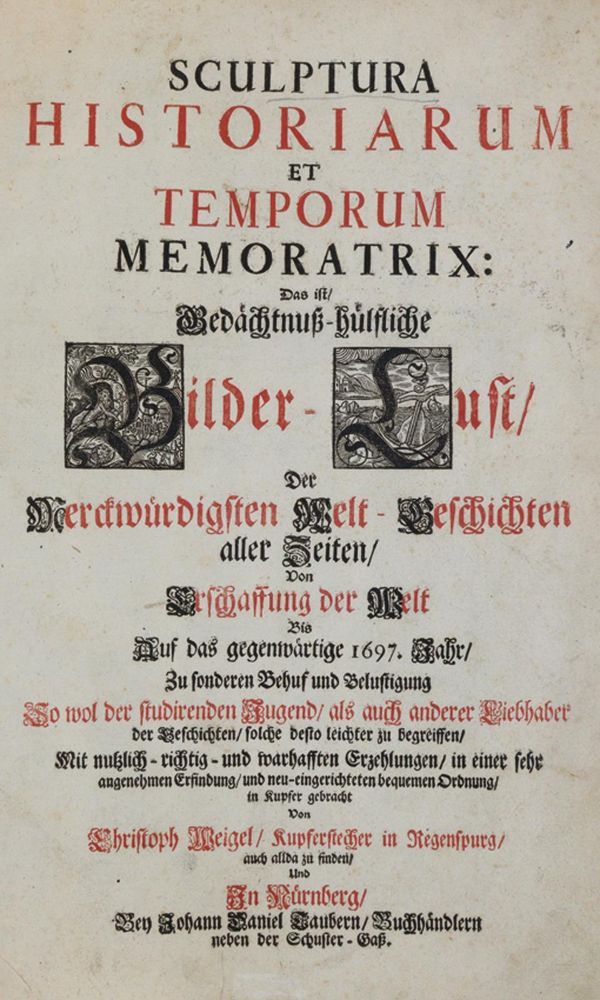 SCULPTURA
HISTORIARUM
ET
TEMPORUM
MEMORATRIX:
Das ist/
Gedächtnuß-hülfliche
Bilder-Lust/
Der
Merckwürdigsten Welt-Geschichten
aller Zeiten/
Von
Erschaffung der Welt
Bis
Auf das gegenwärtige 1697. Jahr/
Zu sonderen Behuf und Belustigung
So wol der studirenden Jugend/ als auch anderer Liebhaber
der Geschichten/ solche desto leichter zu begreiffen/
Mit nutzlich-richtig-und warhafften Erzehlungen/ in einer sehr
angenehmen Erfindung/ und neu-eingerichteten bequemen Ordnung/
in Kupfer gebracht
Von
Christoph Weigel/ Kupferstecher in Regenspurg/
auch allda zu finden/
Und
In Nürnberg/
Bey Johann Daniel Taubern/ Buchhändlern
neben der Schuster-Gaß.